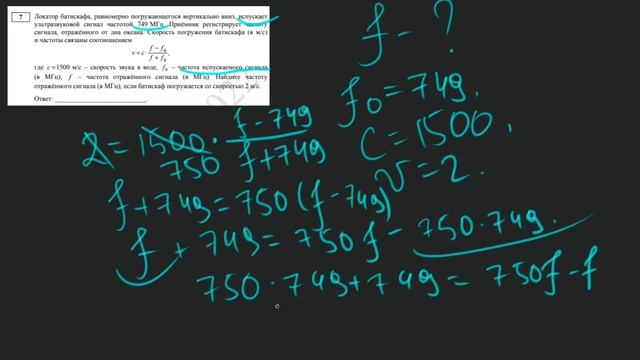 7
Локатор батискафа, равномерно погружающегося вертикально вниз, испускает
ультразвуковой сигнал частотой 749 МГц. Приёмник регистрирует частоту
сигнала, отражённого от дна океана. Скорость погружения батискафа (в м/с)
и частоты связаны соотношением
v = c · (f − f₀)/(f + f₀),
где c = 1500 м/с – скорость звука в воде, f₀ – частота испускаемого сигнала
(в МГц), f – частота отражённого сигнала (в МГц). Найдите частоту
отражённого сигнала (в МГц), если батискаф погружается со скоростью 2 м/с.
Ответ:
f - ?
f0 = 749.
C = 1500,
V = 2.
2 = 1500 · (f - 749)/(f + 749)
750
f + 749 = 750 (f - 749)
f + 749 = 750f - 750·749.
750·749 + 749 = 750f - f